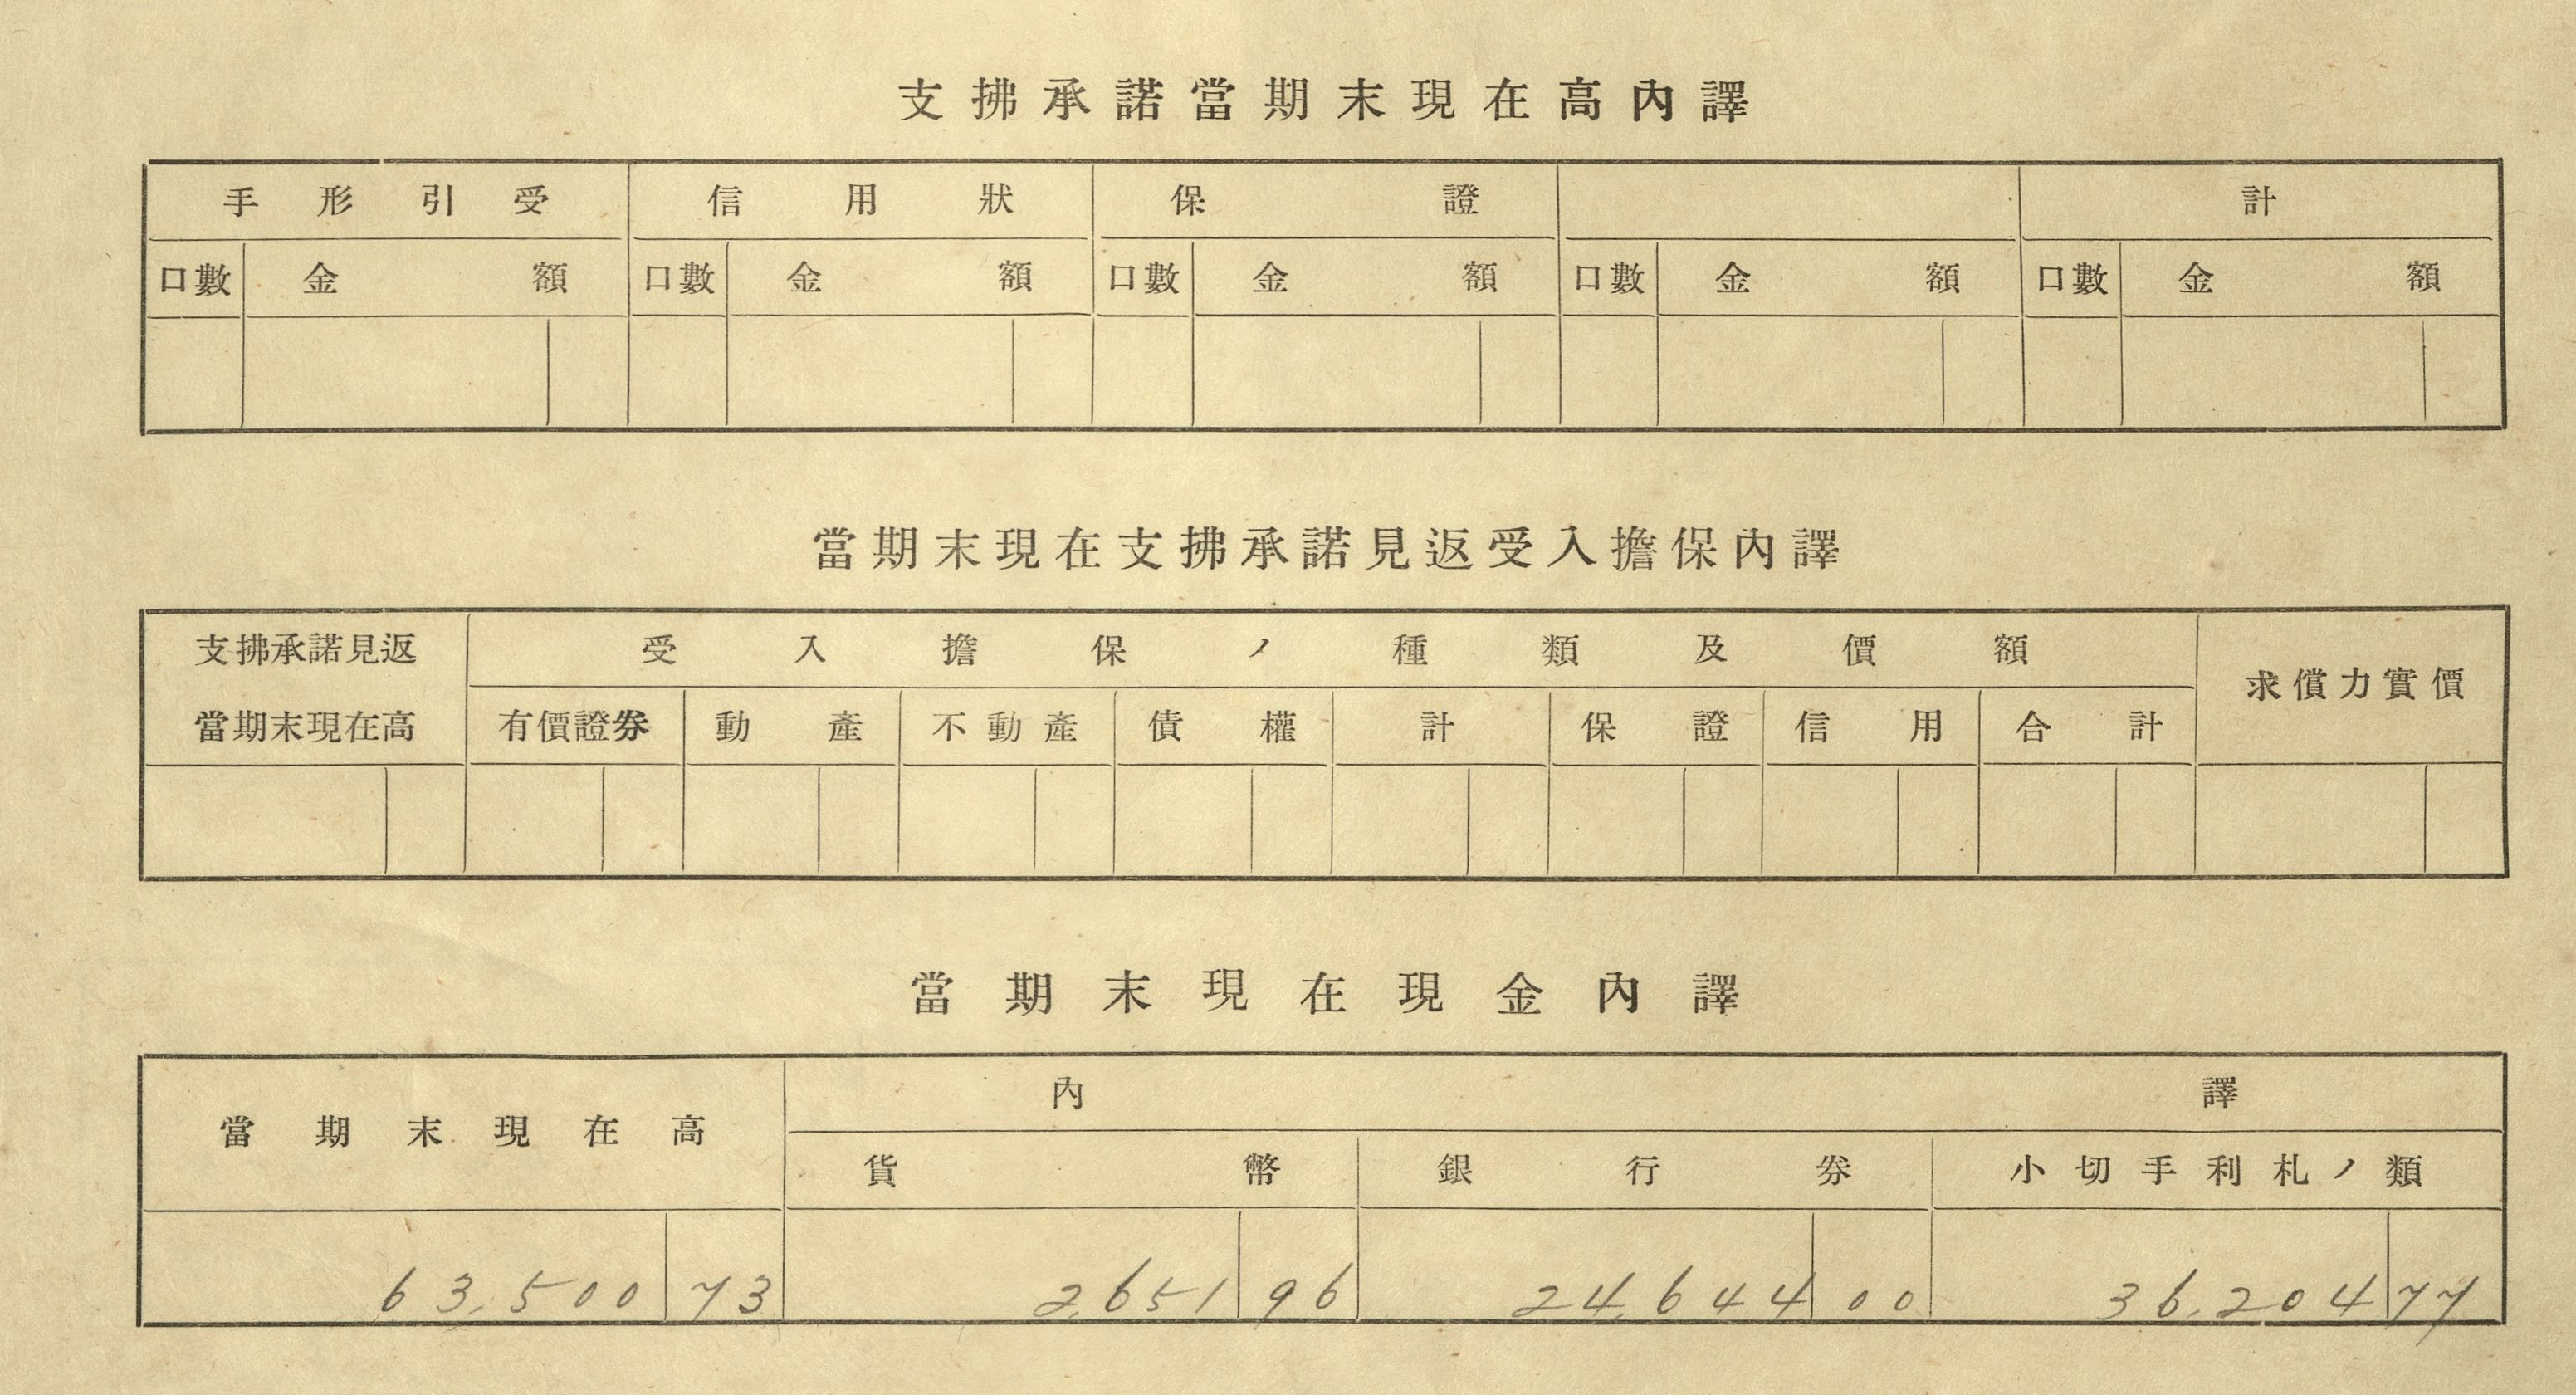 支拂承諾當期末現在高內譯
手形引受 信用狀 保證 計
口數 金額 口數 金額 口數 金額 口數 金額 口數 金額
當期末現在支拂承諾見返受入擔保內譯
支拂承諾見返 受入擔保ノ種類及價額 求償力實價
當期末現在高 有價證券 動產 不動產 債權 計 保證 信用 合計
當期末現在現金內譯
當期末現在高 內譯
貨幣 銀行券 小切手利札ノ類
63,500 73 2,651 96 24,644 00 36,204 77